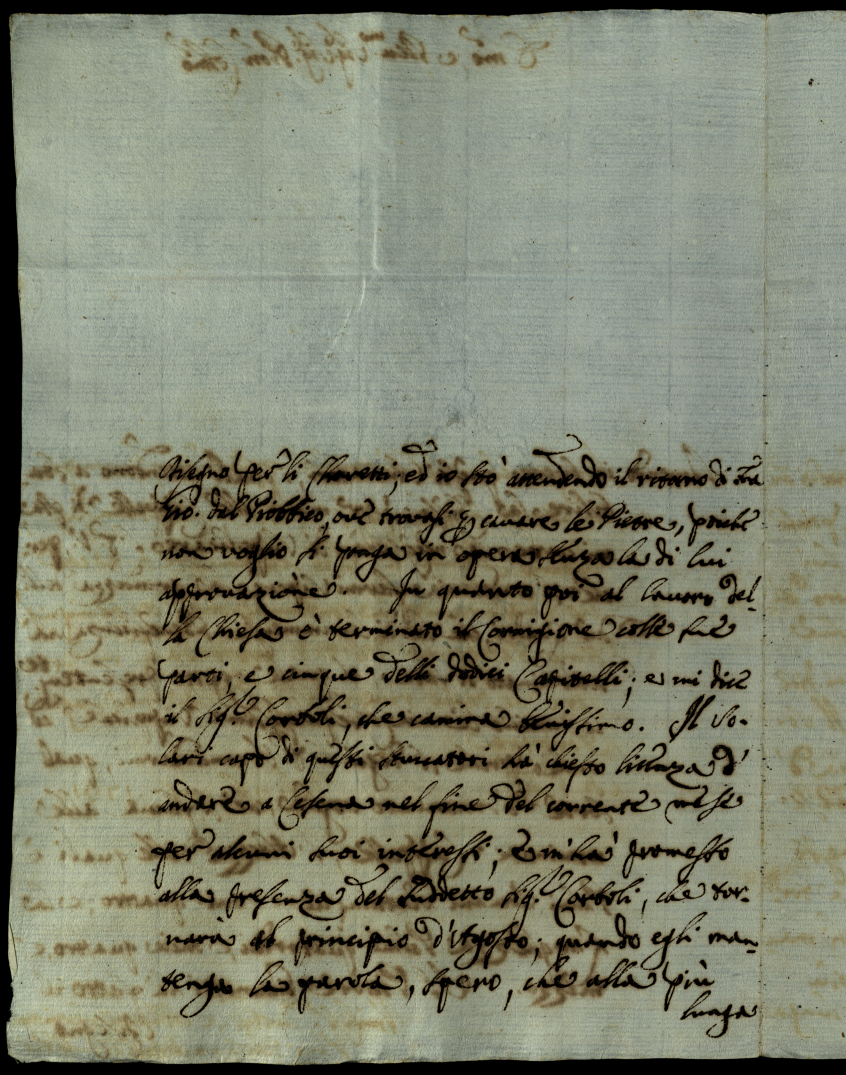 disegno per li Sfioretti; ed io stò attendendo il ritorno di Fra
Gio. dal Piobbico, ove trovasi p cavare le Pietre, poiche
non voglio si ponga in opera senza la di lui
approvazione. In quanto poi al lavoro del-
la Chiesa è terminato il Cornigione colle sue
parti, e cinque delli dodici Capitelli; e mi dice
il Sig.r Corboli, che camina benissimo. Il So-
lari capo di questi stuccatori hà chiesto licenza d'
andare a Cesena nel fine del corrente mese
per alcuni suoi interessi; e m'hà promesso
alla presenza del suddetto Sig.r Corboli, che tor-
narà al principio d'Agosto; quando egli man-
tenga la parola, spero, che alla più
lunga